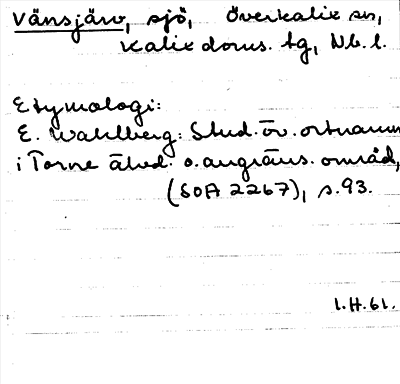 Vänsjärv, sjö, Överkalix sn,
Kalix doms. tg, Nb. l.
Etymologi:
E. Wahlberg: Stud. öv. ortnamn
i Torne älvd. o. angräns. områd,
(SOA 2267), s. 93.
I.H.61.